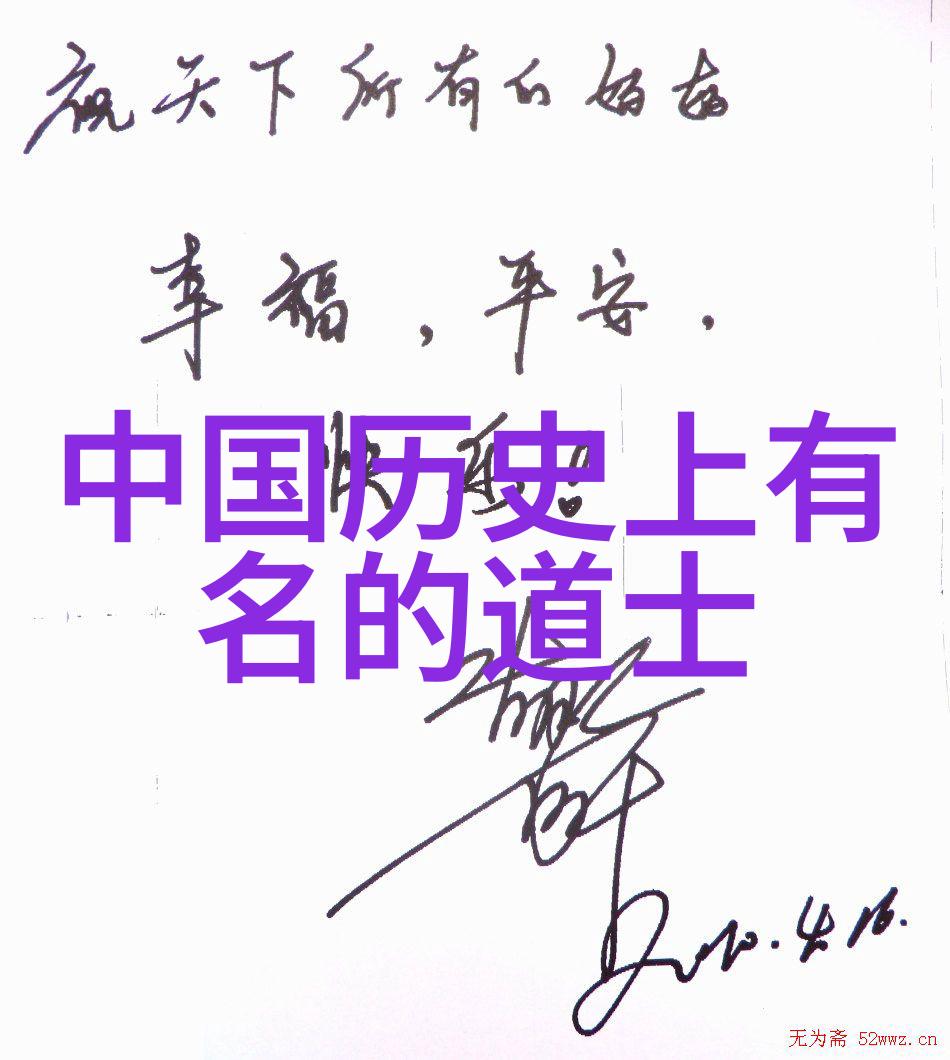 祝天下所有的妈妈
幸福，平安，
快乐！
中国历史上有
名的道士
2010.4.16.
无为斋 52wwz.cn